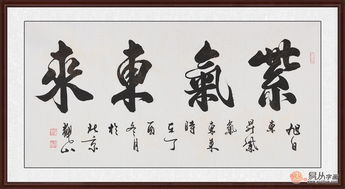 紫氣東來
旭日
東
昇紫
氣
東來
時
在丁
酉
冬月
於
北京
易从字画